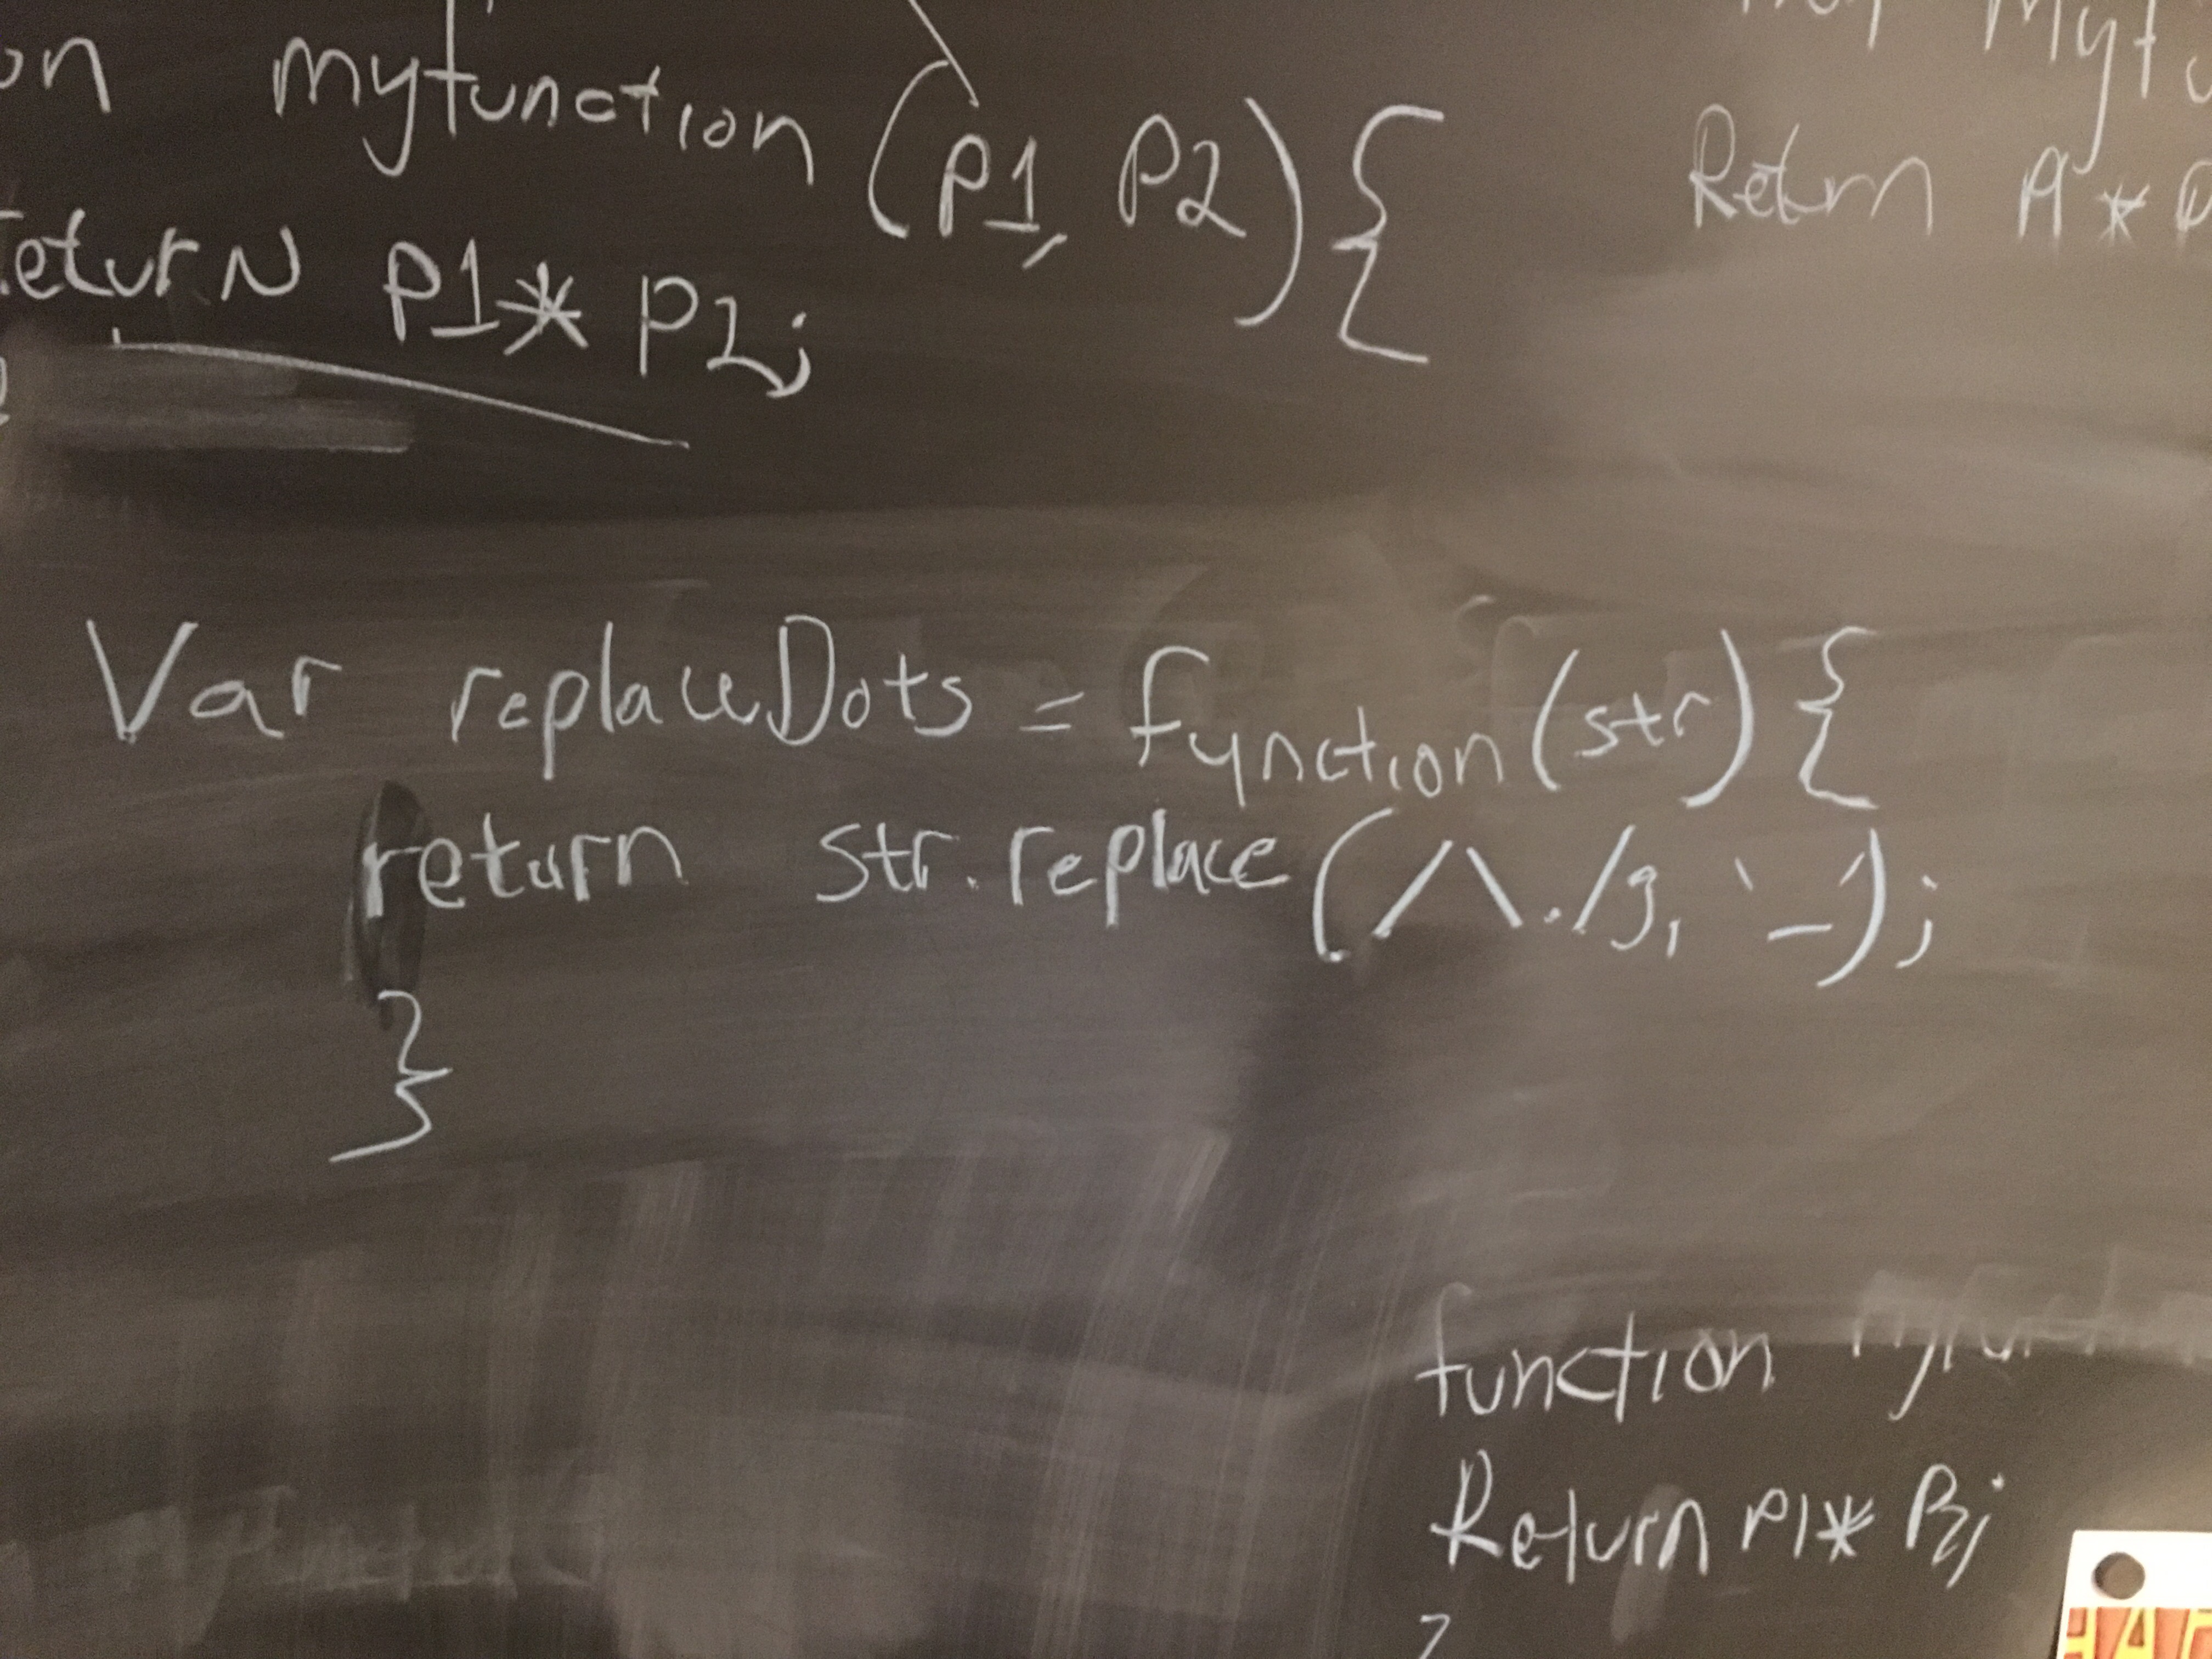 on myfunction (P1, P2){
return P1* P2;
Return A*
Var replaceDots = function(str){
return str.replace(/\./g, '_');
}
function
Return P1* P2;